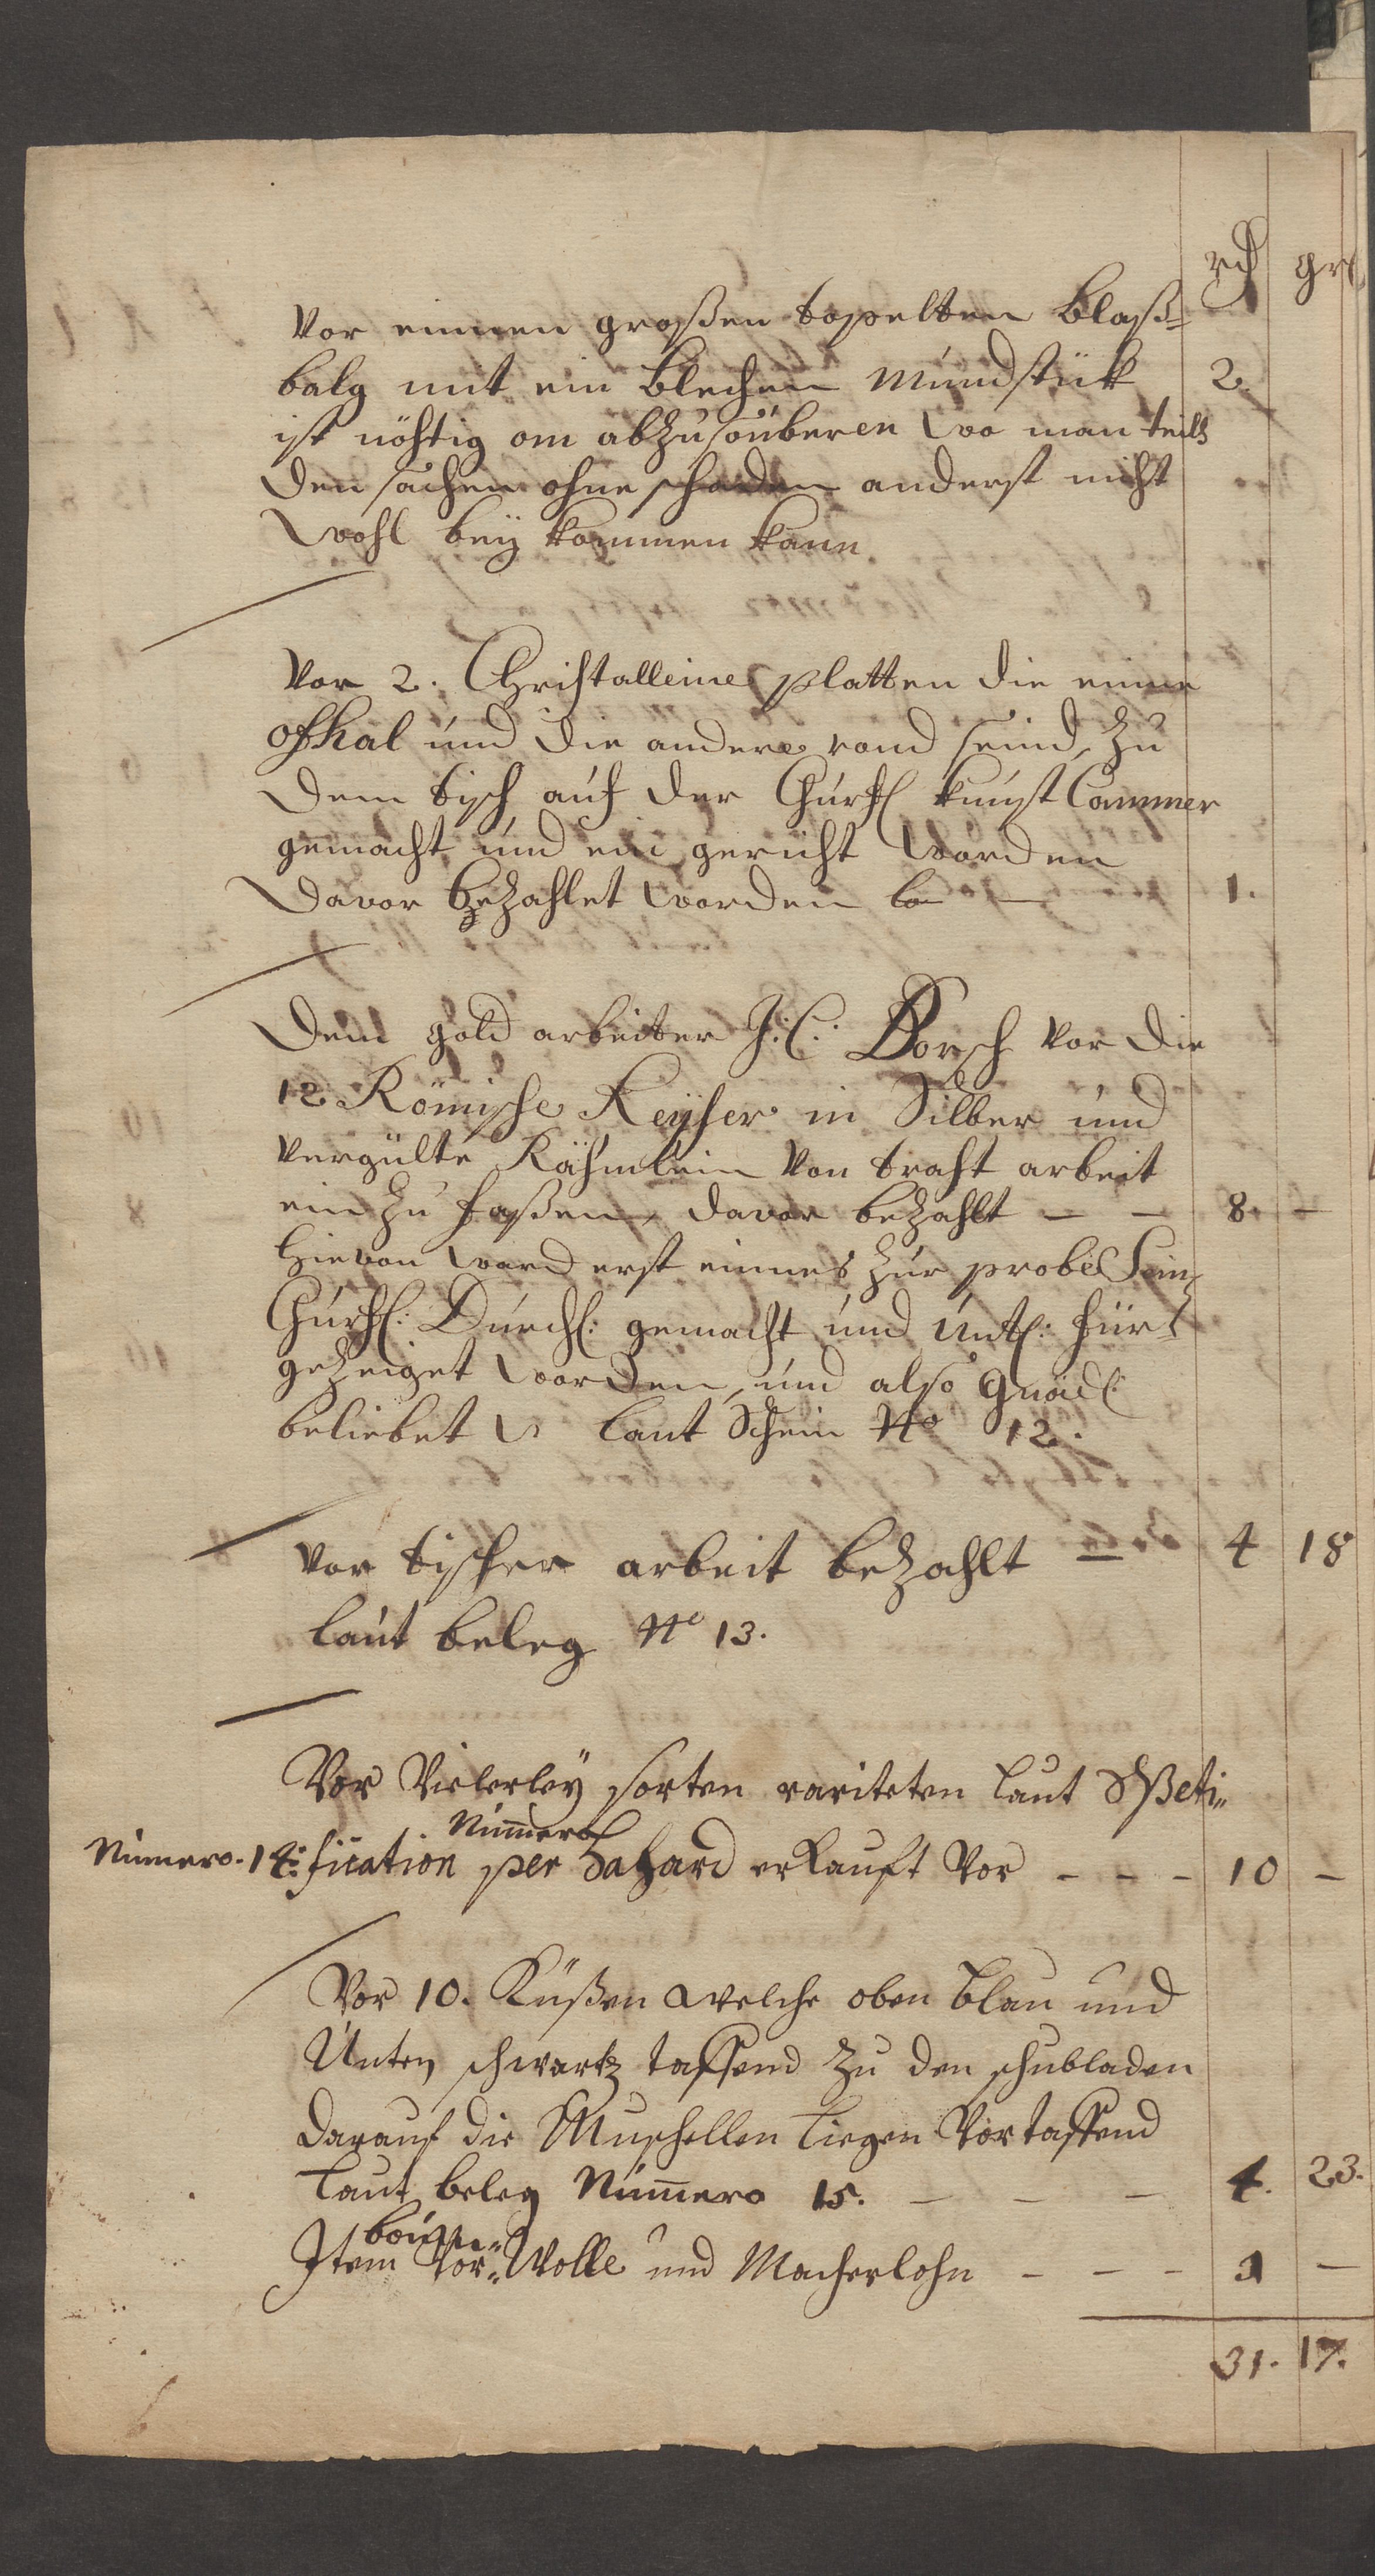 rth grs
Vor einnen großen topelten blaß=
balg mit ein blechen mundstük 2.
ist nöhtig om abzusöuberen wo man teils
den sachen ohne schaden anderst nicht
wohl beÿ kommen kann.
Vor 2. Christalleine platten die eine
ofhal und die andere rond seind, zu
dem tisch auf der Churfl kunst Cammer
gemacht und ein gericht worden
davor bezahlet worden 1.
Dem gold arbeitter J: C: Dorsch vor die
12 Römische Keÿser in Silber und
vergülte Rähmlein von traht arbeit
ein zu faßen, davor bezahlt — — 8. —
hievon ward erst einnes zur probe Sein
Churfl: Durchl: gemacht und untl: für
gezeiget worden, und also gnädl:
beliebet laut Schein No 12.
vor tischer arbeit bezahlt — 4 18
laut beleg No 13.
Vor Vielerleÿ sorten rariteten laut Speti„
Numero
Numero. 14: fication per Hazard erkauft Vor - - - 10 —
Vor 10. Küßen welche oben blau und
Unten schwartz taffend zu den schubladen
darauf die Muschellen liegen Vor taffend
laut beleg Numero 15. — — — 4. 23.
boum„
Item Vor„ Wolle und Macherlohn - - - 1 —
31. 17.